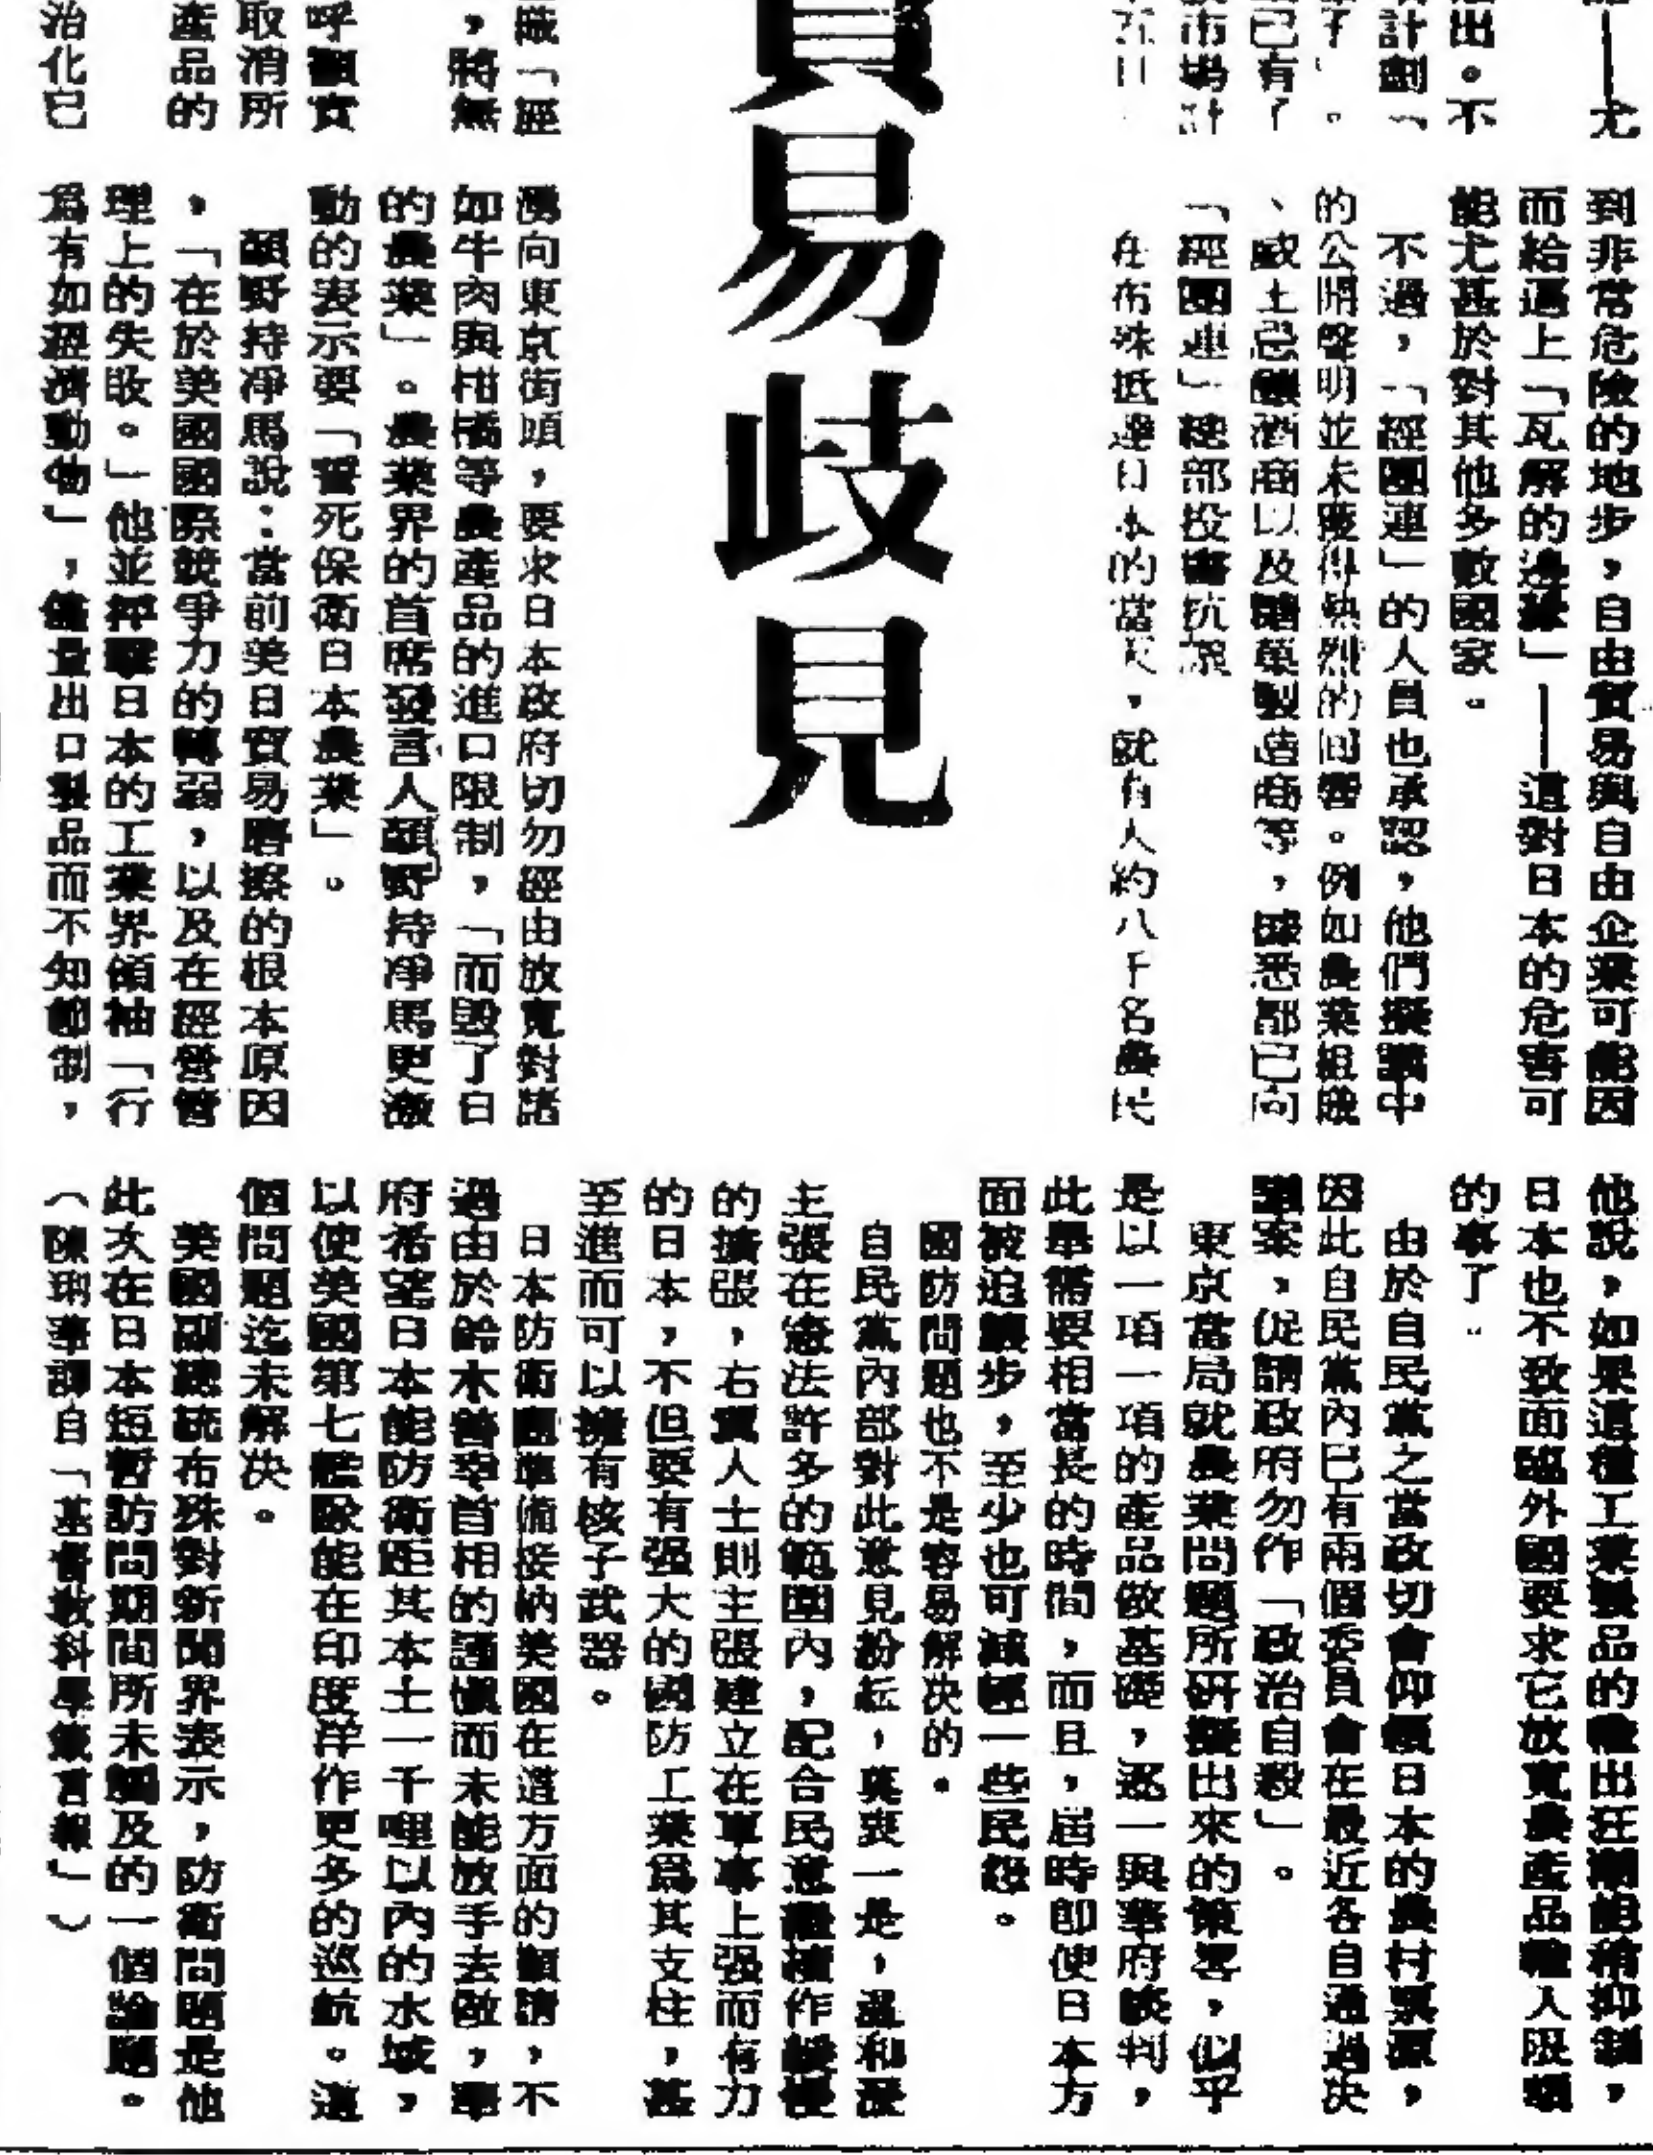 尤
出。不
計劃「
」。
已有了
市場計
貿易歧見
職「經
,將無
呼籲實
取消所
產品的
治化已
到非常危險的地步,自由貿易與自由企業可能因
而給逼上「瓦解的邊緣」——這對日本的危害可
能尤甚於對其他多數國家。
不過,「經團連」的人員也承認,他們擬議中
的公開聲明並未獲得熱烈的回響。例如農業組織
、威士忌釀酒商以及糖菓製造商等,據悉都已向
「經團連」總部投書抗議
在布殊抵達日本的當天,就有人約八千名農民
湧向東京街頭,要求日本政府切勿經由放寬對諸
如牛肉與柑橘等農產品的進口限制,「而毀了日
的農業」。農業界的首席發言人頴野持淨馬更激
動的表示要「誓死保衛日本農業」。
頴野持淨馬說:當前美日貿易磨擦的根本原因
,「在於美國國際競爭力的轉弱,以及在經營管
理上的失敗。」他並抨擊日本的工業界領袖「行
爲有如經濟動物」,儘量出口製品而不知節制,
他說,如果這種工業製品的輸出狂潮能稍抑制,
日本也不致面臨外國要求它放寬農產品輸入限額
的事了。
由於自民黨之當政切會仰賴日本的農村票源,
因此自民黨內已有兩個委員會在最近各自通過決
議案,促請政府勿作「政治自殺」。
東京當局就農業問題所研擬出來的策畧,似乎
是以一項一項的產品做基礎,逐一與華府談判,
此舉需要相當長的時間,而且,屆時即使日本方
面被迫讓步,至少也可減輕一些民怨。
國防問題也不是容易解決的。
自民黨內部對此意見紛紜,莫衷一是,溫和派
主張在憲法許多的範圍內,配合民意積作緩慢
的擴張,右翼人士則主張建立在軍事上强而有力
的日本,不但要有强大的國防工業爲其支柱,甚
至進而可以擁有核子武器。
日本防衛廳準備接納美國在這方面的籲請,不
過由於鈴木善幸首相的謹慎而未能放手去做,華
府希望日本能防衛距其本土一千哩以內的水域,
以使美國第七艦隊能在印度洋作更多的巡航。這
個問題迄未解決。
美國副總統布殊對新聞界表示,防衛問題是他
此次在日本短暫訪問期間所未觸及的一個論題。
(陳琲華譯自「基督教科學箴言報」)